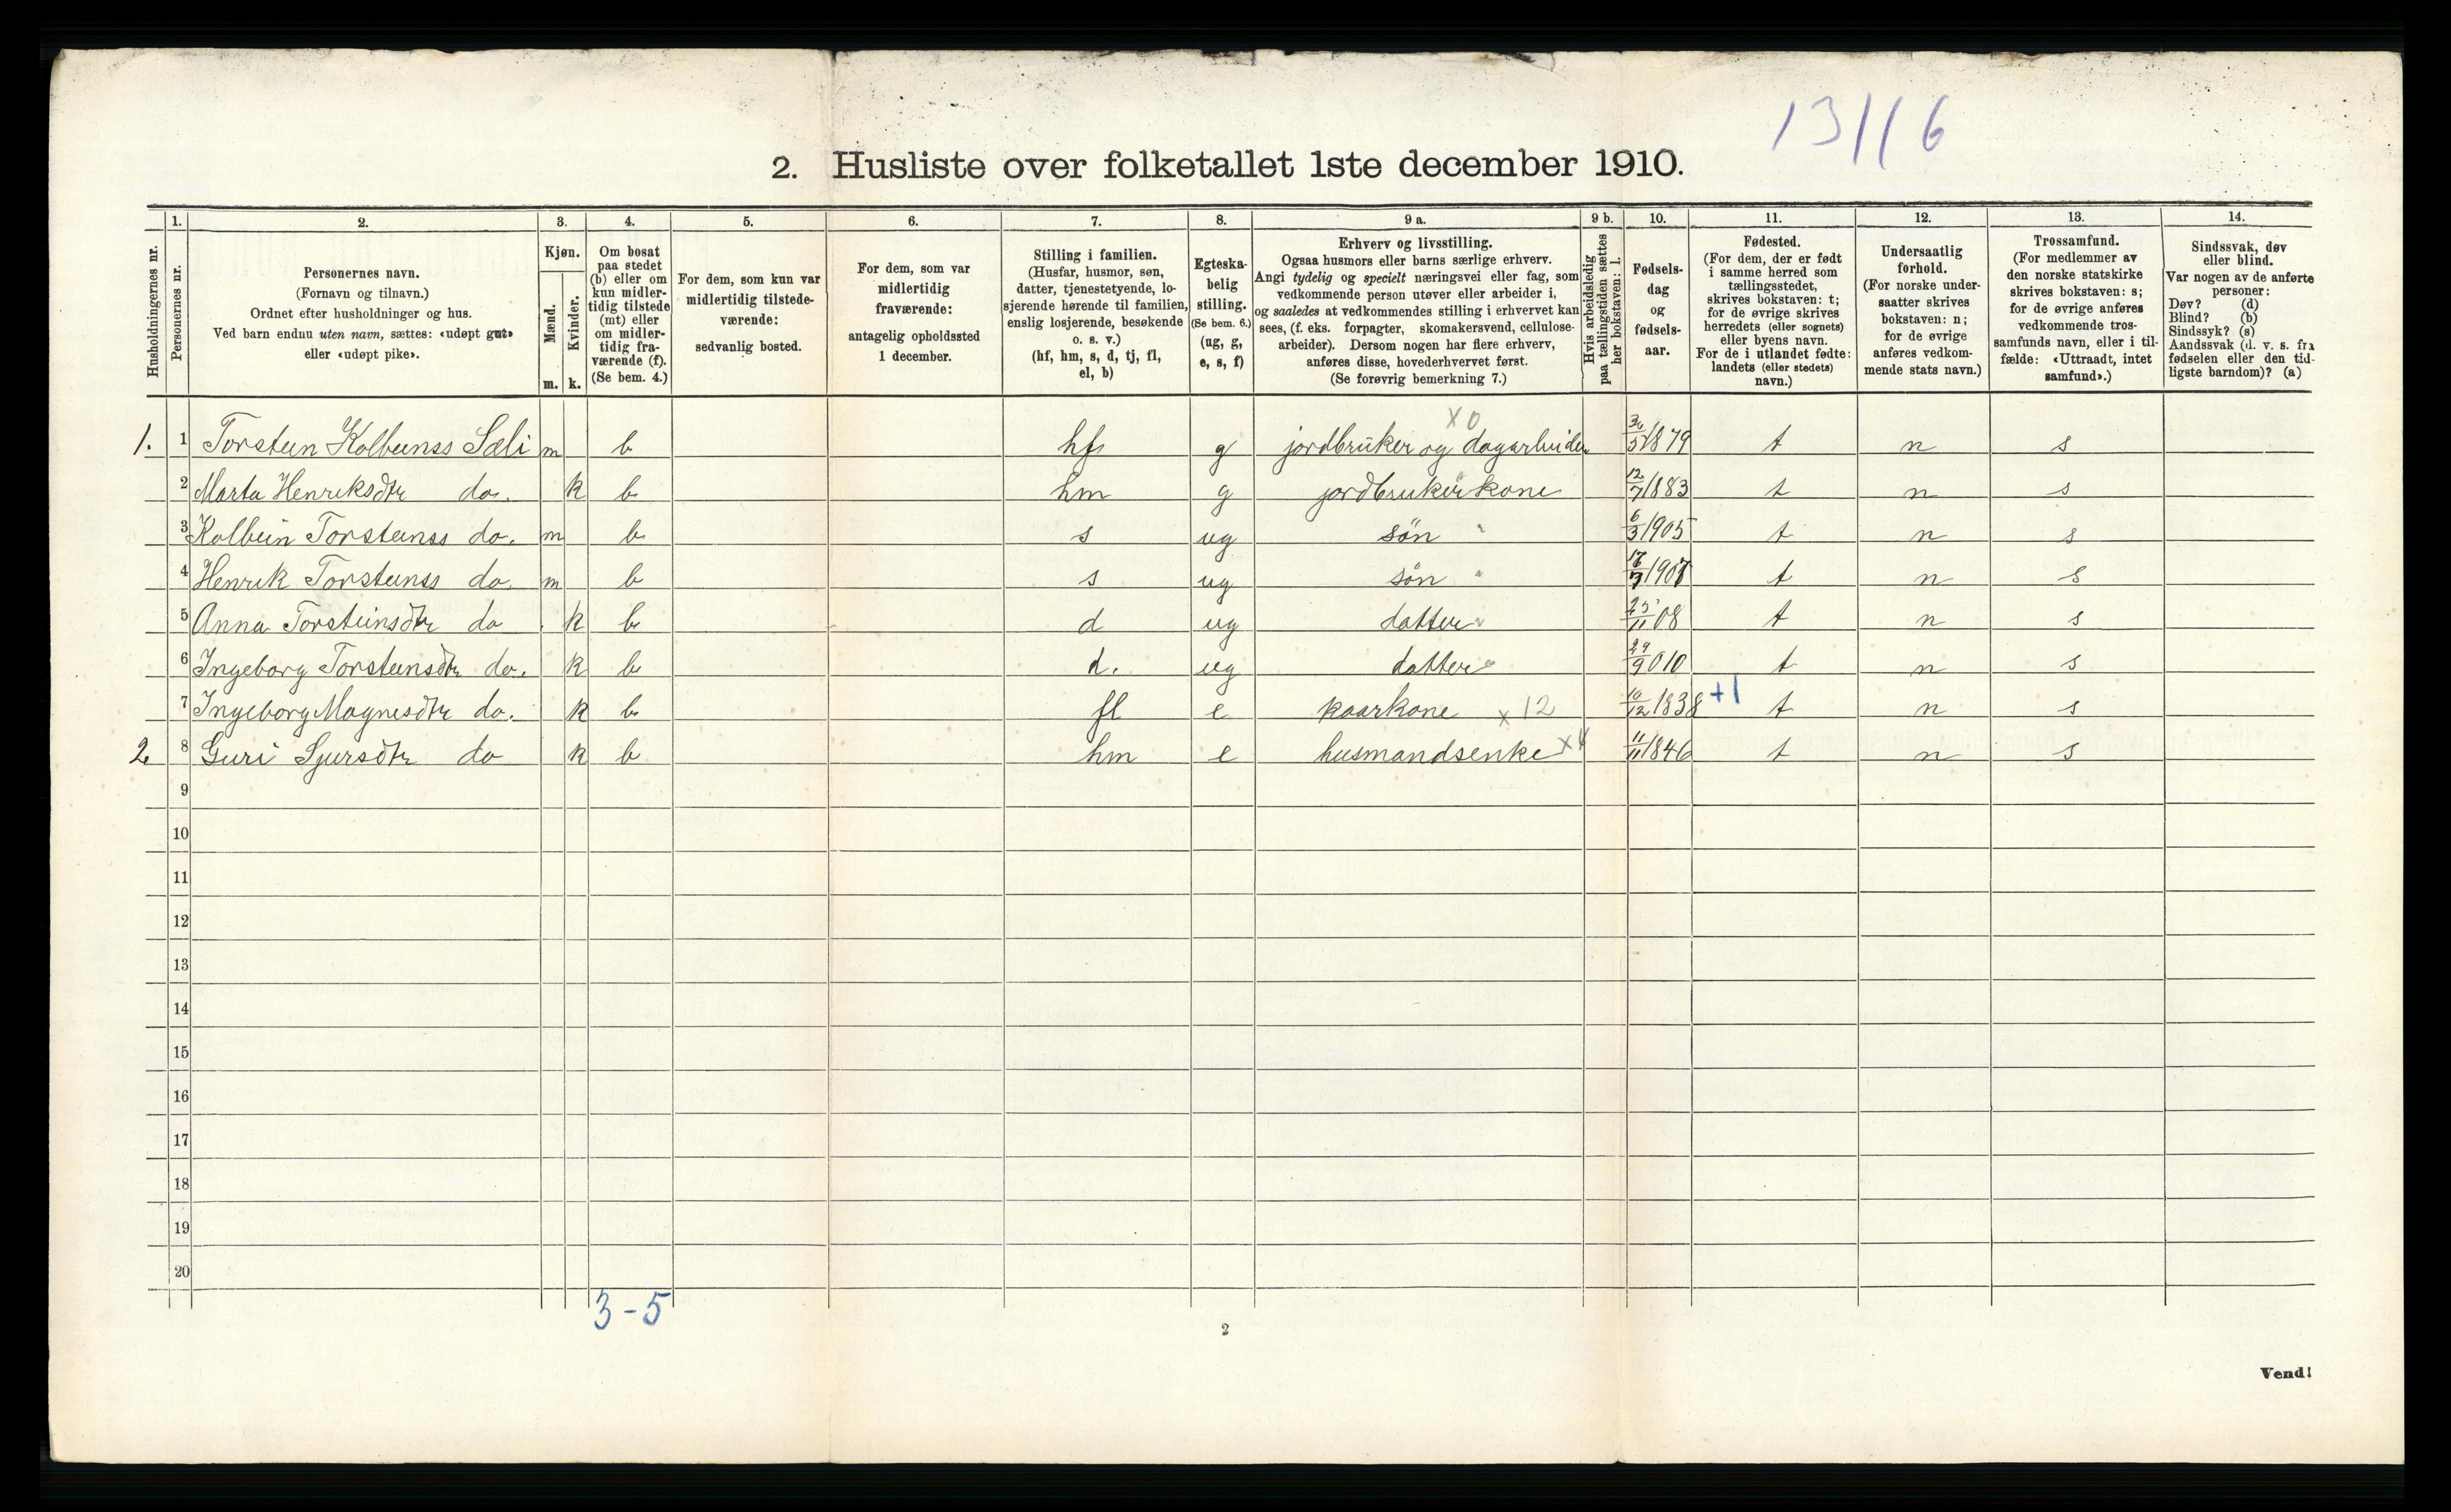 13116
2. Husliste over folketallet 1ste december 1910.
Husholdningernes nr.
1.
Personernes nr.
2.
Personernes navn.
(Fornavn og tilnavn.)
Ordnet efter husholdninger og hus.
Ved barn endnu uten navn, sættes: «udøpt gut»
eller «udøpt pike».
3.
Kjøn.
Mænd.
m.
Kvinder.
k.
4.
Om bosat
paa stedet
(b) eller om
kun midler-
tidig tilstede
(mt) eller
om midler-
tidig fra-
værende (f).
(Se bem. 4.)
5.
For dem, som kun var
midlertidig tilstede-
værende:
sedvanlig bosted.
6.
For dem, som var
midlertidig
fraværende:
antagelig opholdssted
1 december.
7.
Stilling i familien.
(Husfar, husmor, søn,
datter, tjenestetyende, lo-
sjerende hørende til familien,
enslig losjerende, besøkende
o. s. v.)
(hf, hm, s, d, tj, fl,
el, b)
8.
Egteska-
belig
stilling.
(Se bem. 6.)
(ug, g,
e, s, f)
9 a.
Erhverv og livsstilling.
Ogsaa husmors eller barns særlige erhverv.
Angi tydelig og specielt næringsvei eller fag, som
vedkommende person utøver eller arbeider i,
og saaledes at vedkommendes stilling i erhvervet kan
sees, (f. eks. forpagter, skomakersvend, cellulose-
arbeider). Dersom nogen har flere erhverv,
anføres disse, hovederhvervet først.
(Se forøvrig bemerkning 7.)
9 b.
Hvis arbeidsledig
paa tællingstiden sættes
her bokstaven: l.
10.
Fødsels-
dag
og
fødsels-
aar.
11.
Fødested.
(For dem, der er født
i samme herred som
tællingsstedet,
skrives bokstaven: t;
for de øvrige skrives
herredets (eller sognets)
eller byens navn.
For de i utlandet fødte:
landets (eller stedets)
navn.)
12.
Undersaatlig
forhold.
(For norske under-
saatter skrives
bokstaven: n;
for de øvrige
anføres vedkom-
mende stats navn.)
13.
Trossamfund.
(For medlemmer av
den norske statskirke
skrives bokstaven: s;
for de øvrige anføres
vedkommende tros-
samfunds navn, eller i til-
fælde: «Uttraadt, intet
samfund».)
14.
Sindssvak, døv
eller blind.
Var nogen av de anførte
personer:
Døv? (d)
Blind? (b)
Sindssyk? (s)
Aandssvak (d. v. s. fra
fødselen eller den tid-
ligste barndom)? (a)
X0
1. 1 Torstein Kolbeinss Sæli m b hf g jordbruker og dagarbeider 30/5 1879 t n s
2 Marta Henriksdtr do. k b hm g jordbruker kone 12/7 1883 t n s
3 Kolbein Torsteinss do. m b s ug søn " 6/3 1905 t n s
4 Henrik Torsteinss do. m b s ug søn " 1907 t n s
5 Anna Torsteinsdtr do k b d ug datter " 25/11 08 t n s
6 Ingeborg Torsteinsdtr do. k b d. ug datter " 29/9 010 t n s
7 Ingeborg Magnesdtr do. k b fl e kaarkone x 12 10/12 1838 +1 t n s
2 8 Guri Sjursdtr do k b hm e husmandsenke 11/11 1846 t n s
9
10
11
12
13
14
15
16
17
18
19
20
3-5
2
Vend!